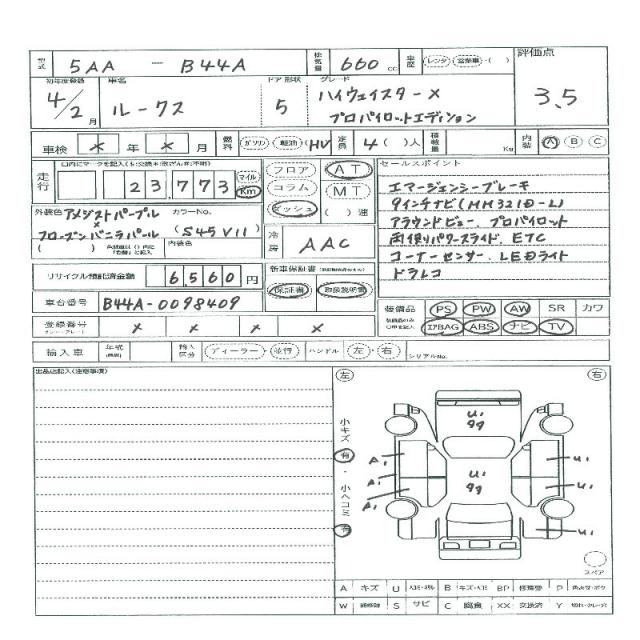 型式 5AA - B44A 排気量 660 cc 車歴 レンタ 営業車・( ) 評価点
初年度登録 車名 ドア 形状 グレード
4/2月 ルークス 5 ハイウェイスターX 3.5
プロパイロットエディション
車検 * 年 * 月 燃料 ガソリン・軽油・(HV) 定員 4( )人 積載量 Kg 内装 A B C
走行 23,773 マイル Km フロア AT セールスポイント
コラム MT
ダッシュ ( )速
エマージェンシーブレーキ
外装色 アメジストパープル カラーNo. 9インチナビ(MM321D-L)
× アラウンドビュー、プロパイロット
フローズンバニラパール (S45V11) 冷房 AAC 両側パワースライド、ETC
内装色 コーナーセンサー、LEDライト
リサイクル預託済金額 6,560円 新車保証書 ドラレコ
保証書・取扱説明書
車台番号 B44A-0098409 装備品 PS PW AW SR カワ
登録番号 * * * * エアBAG ABS ナビ TV
輸入車 年式 輸入区分 ディーラー・並行 ハンドル 左・右 シリアルNo.
出品店記入(注意事項) 左 右
小キズ 有・小ヘコミ 有
U1
A1 U1
A1 U1 U1
A1 U1
スペア
A キズ U B キズ・ヘコミ BP P
W S サビ C 腐食 XX 交換済 Y